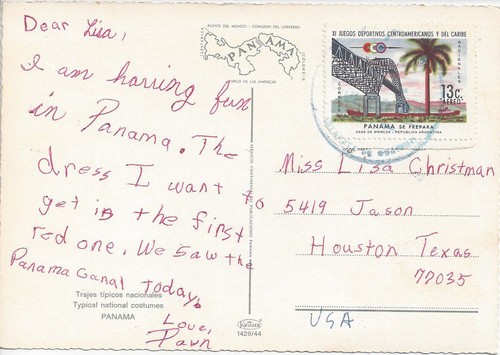 Dear Lisa,
I am having fun
in Panama. The
dress I want to
get is the first
red one. We saw the
Panama Canal Today.
Love,
Dawn
Trajes típicos nacionales
Typical national costumes
PANAMA
PUENTE DEL MUNDO - CORAZON DEL UNIVERSO
PANAMA
XI JUEGOS DEPORTIVOS CENTROAMERICANOS Y DEL CARIBE
13c.
"AEREO"
PANAMA SE PREPARA
CASA DE MONEDA - REPUBLICA ARGENTINA
Miss Lisa Christman
5419 Jason
Houston Texas
77035
USA
1429/44